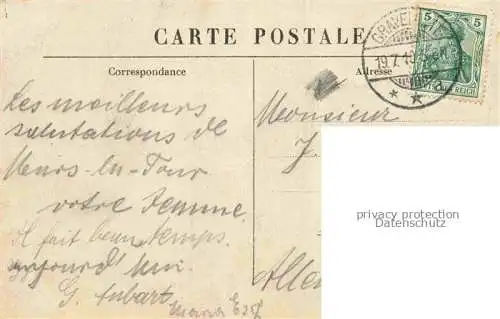 CARTE POSTALE
Correspondance
Adresse
5 5
REICH
19.7.10
Les meilleurs
salutations de
Mars-la-Tour
votre femme.
Il fait beau temps
aujourd'hui.
G.
Monsieur
J.
Alle
privacy protection
Datenschutz